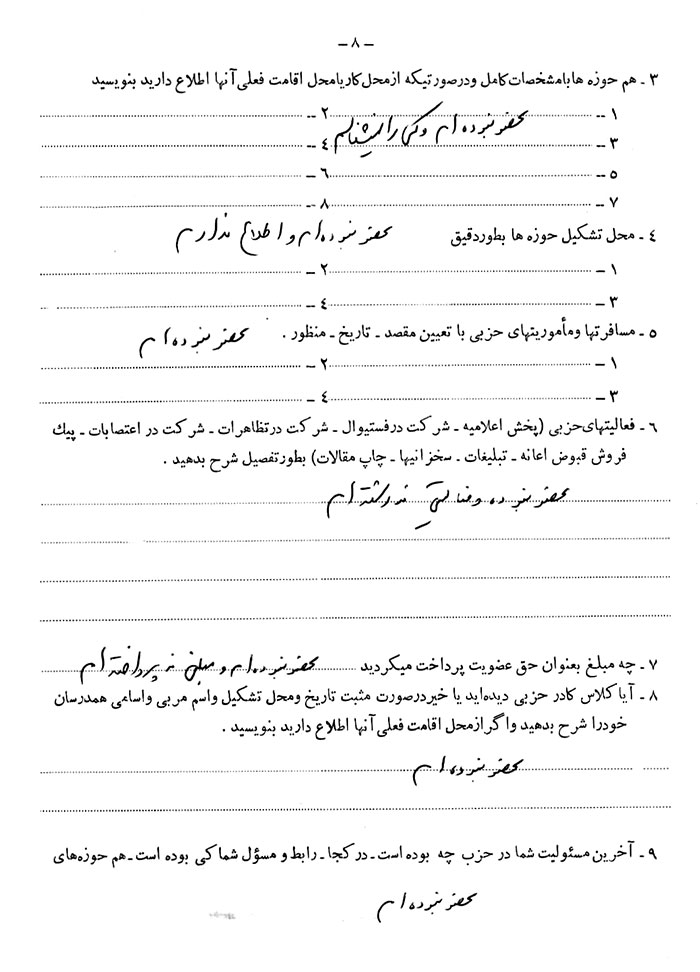 ـ ۸ ـ
۳ ـ هم حوزه ها بامشخصات کامل ودرصورتیکه ازمحل کاریامحل اقامت فعلی آنها اطلاع دارید بنویسید
۱ ـ ۲ ـ
عضو نبوده ام و کسی را نمیشناسم
۳ ـ ۴ ـ
۵ ـ ۶ ـ
۷ ـ ۸ ـ
۴ ـ محل تشکیل حوزه ها بطوردقیق عضو نبوده ام و اطلاع ندارم
۱ ـ ۲ ـ
۳ ـ ۴ ـ
۵ ـ مسافرتها ومأموریتهای حزبی با تعیین مقصد ـ تاریخ ـ منظور . عضو نبوده ام
۱ ـ ۲ ـ
۳ ـ ۴ ـ
۶ ـ فعالیتهای حزبی (پخش اعلامیه ـ شرکت درفستیوال ـ شرکت درتظاهرات ـ شرکت در اعتصابات ـ پیك
فروش قبوض اعانه ـ تبلیغات ـ سخنرانیها ـ چاپ مقالات) بطورتفصیل شرح بدهید .
عضو نبوده و فعالیتی نداشته ام
۷ ـ چه مبلغ بعنوان حق عضویت پرداخت میکردید عضو نبوده ام و مبلغی نه پرداخته ام
۸ ـ آیا کلاس کادر حزبی دیده‌اید یا خیردرصورت مثبت تاریخ ومحل تشکیل واسم مربی واسامی همدرسان
خودرا شرح بدهید واگرازمحل اقامت فعلی آنها اطلاع دارید بنویسید .
عضو نبوده ام
۹ ـ آخرین مسئولیت شما در حزب چه بوده است ـ درکجا ـ رابط و مسؤل شماکی بوده است ـ هم حوزه‌های
عضو نبوده ام